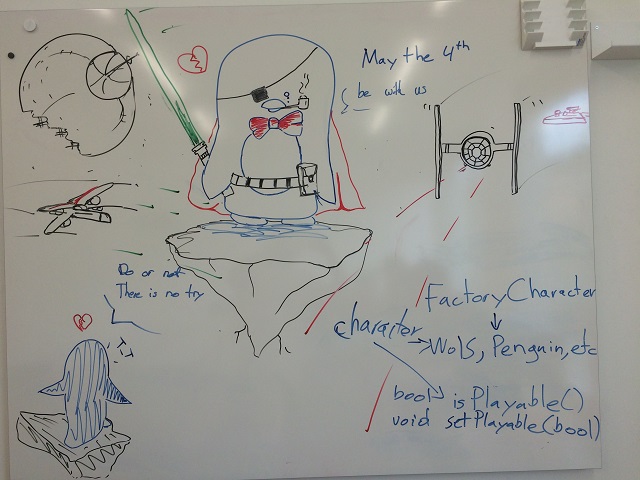 May the 4th
be with us
Do or not
There is no try
FactoryCharacter
character
Wols, Penguin, etc
bool isPlayable()
void setPlayable(bool)